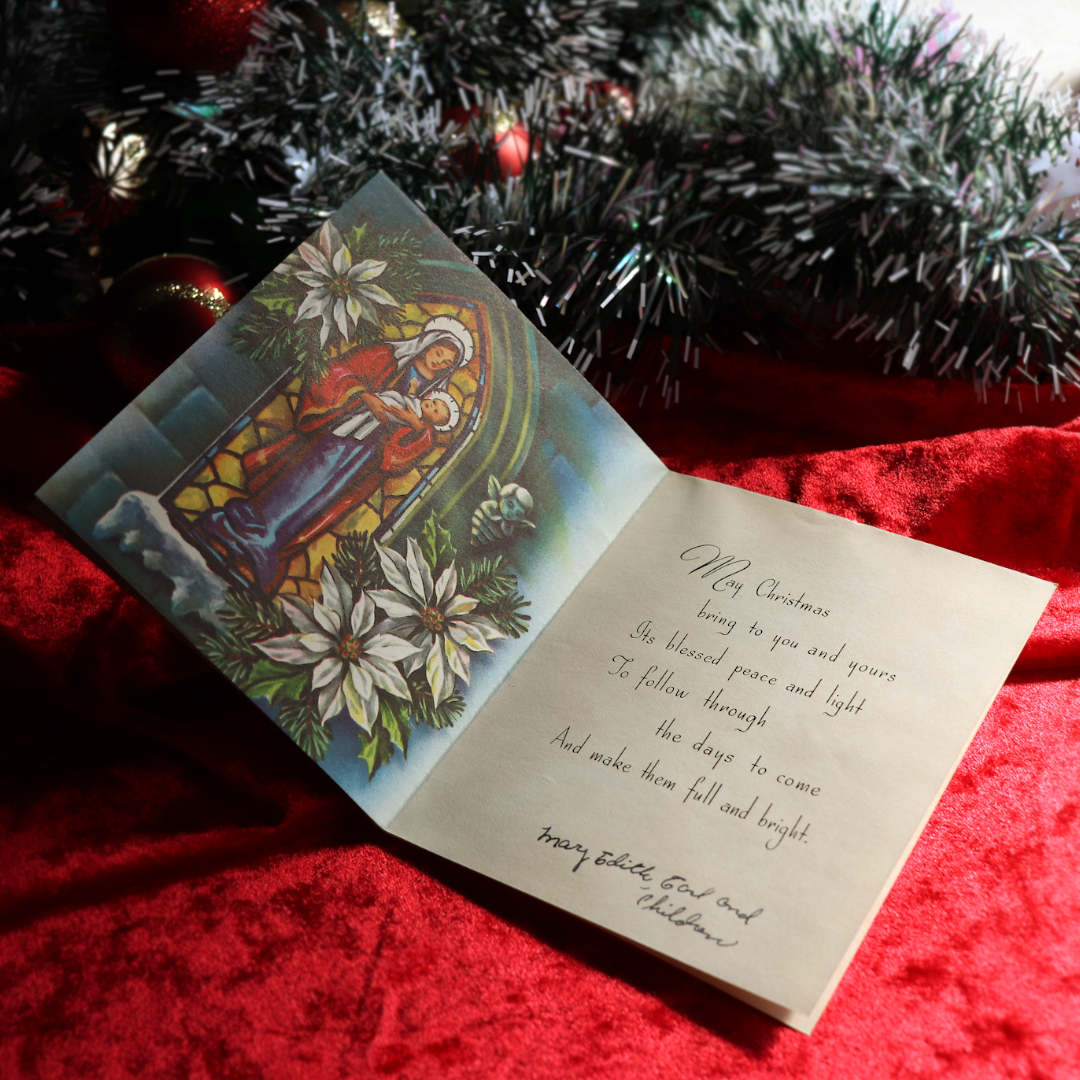 May Christmas
bring to you and yours
Its blessed peace and light
To follow through
the days to come
And make them full and bright.
Mary Edith Earl and
Children